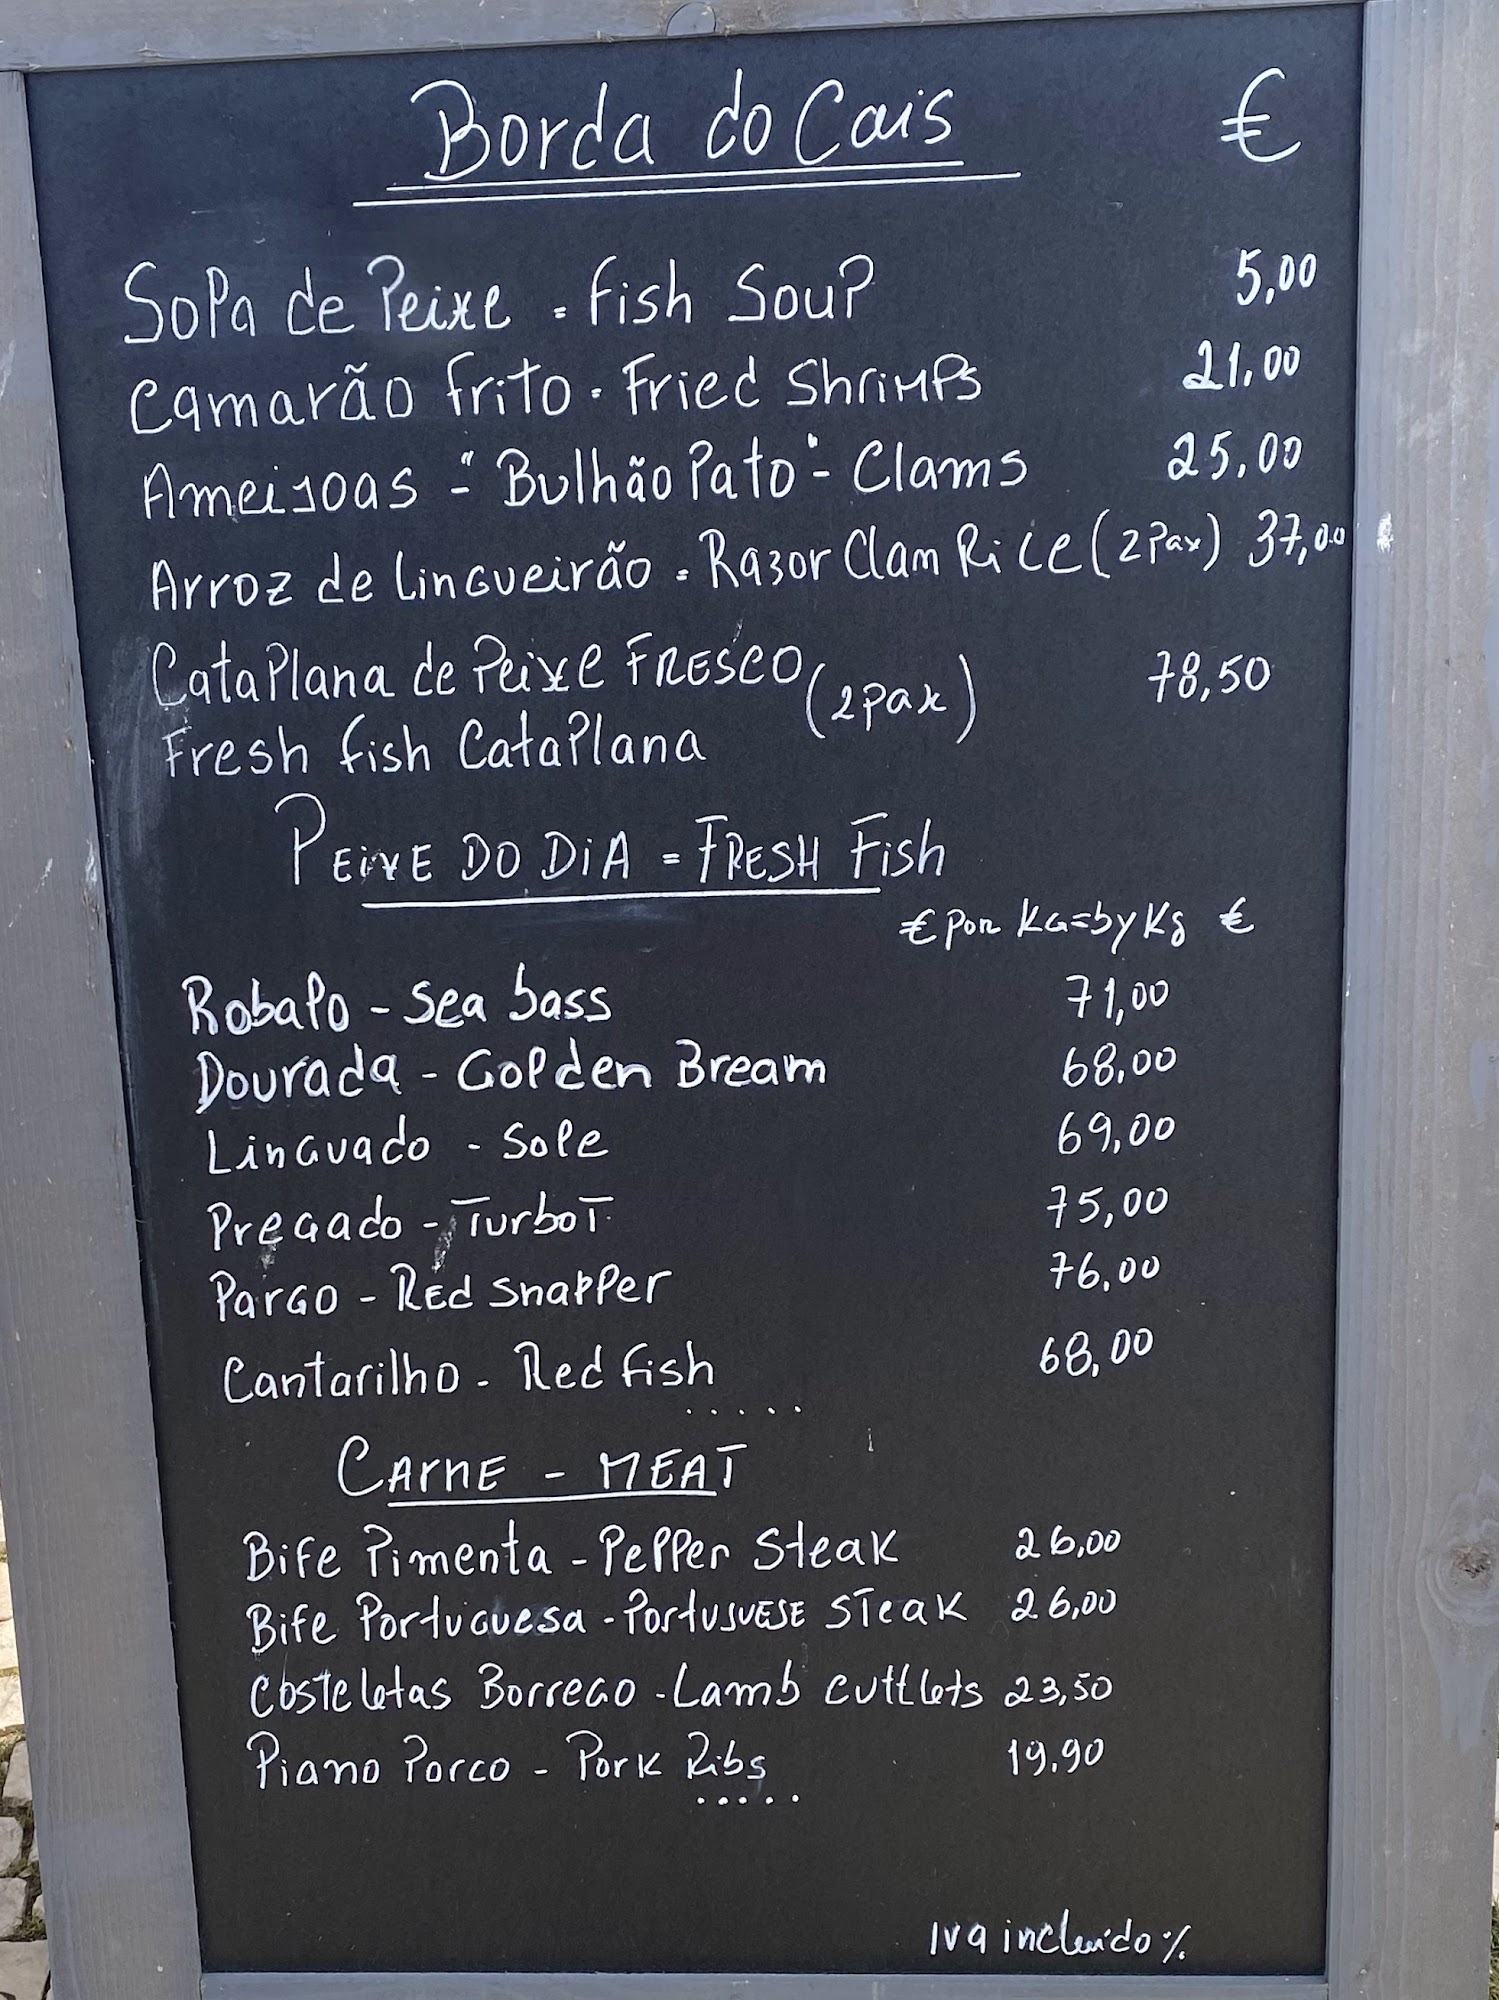 Borda do Cais €
Sopa de Peixe = Fish Soup 5,00
Camarão frito - Fried Shrimps 21,00
Ameijoas - "Bulhão Pato" - Clams 25,00
Arroz de Lingueirão = Razor Clam Rice (2 Pax) 37,00
Cataplana de Peixe FRESCO (2 pax) 78,50
Fresh fish Cataplana
PEIXE DO DIA = FRESH Fish
€ por KG = by Kg €
Robalo - Sea bass 71,00
Dourada - Golden Bream 68,00
Linguado - Sole 69,00
Pregado - Turbot 75,00
Pargo - Red Snapper 76,00
Cantarilho - Red fish 68,00
.....
CARNE - MEAT
Bife Pimenta - Pepper Steak 26,00
Bife Portuguesa - Portuguese Steak 26,00
Costeletas Borrego - Lamb cuttlets 23,50
Piano Porco - Pork Ribs 19.90
.....
Iva incluído %